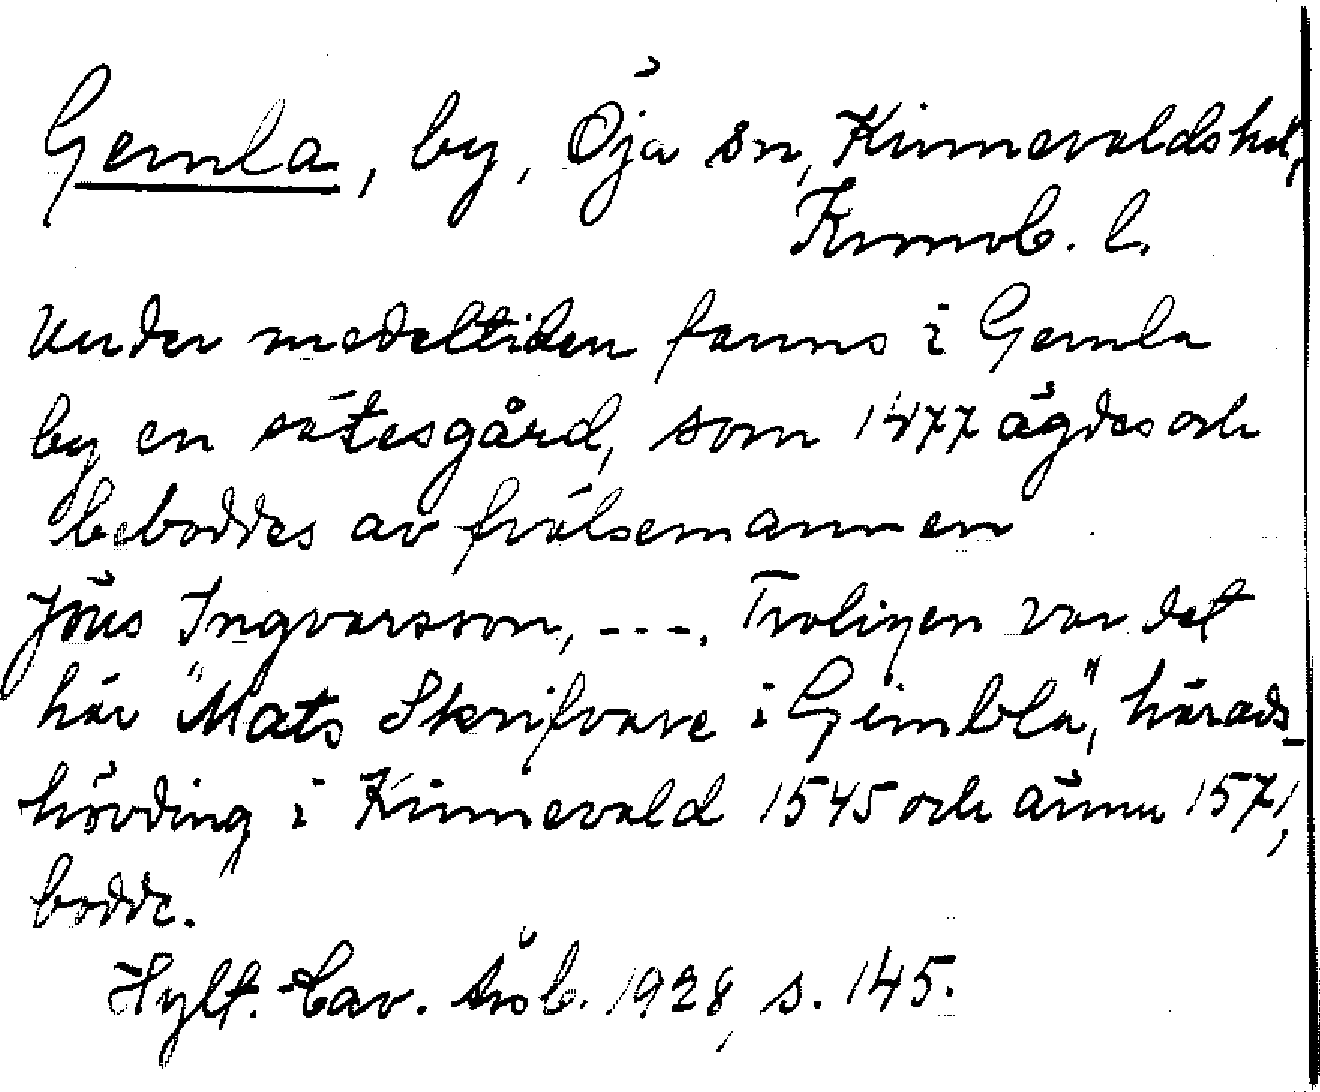 Gemla, by, Öja sn, Kinnevalds hd,
Kronob. l.
Under medeltiden fanns i Gemla
by en sätesgård, som 1477 ägdes och
beboddes av frälsemannen
Jöns Ingvarsson, ---. Troligen var det
här "Mats Skrifvare i Gimbla", härads-
hövding i Kinnevald 1545 och ännu 1571,
bodde.
Hylt.-Cav. årsb. 1928, s. 145.